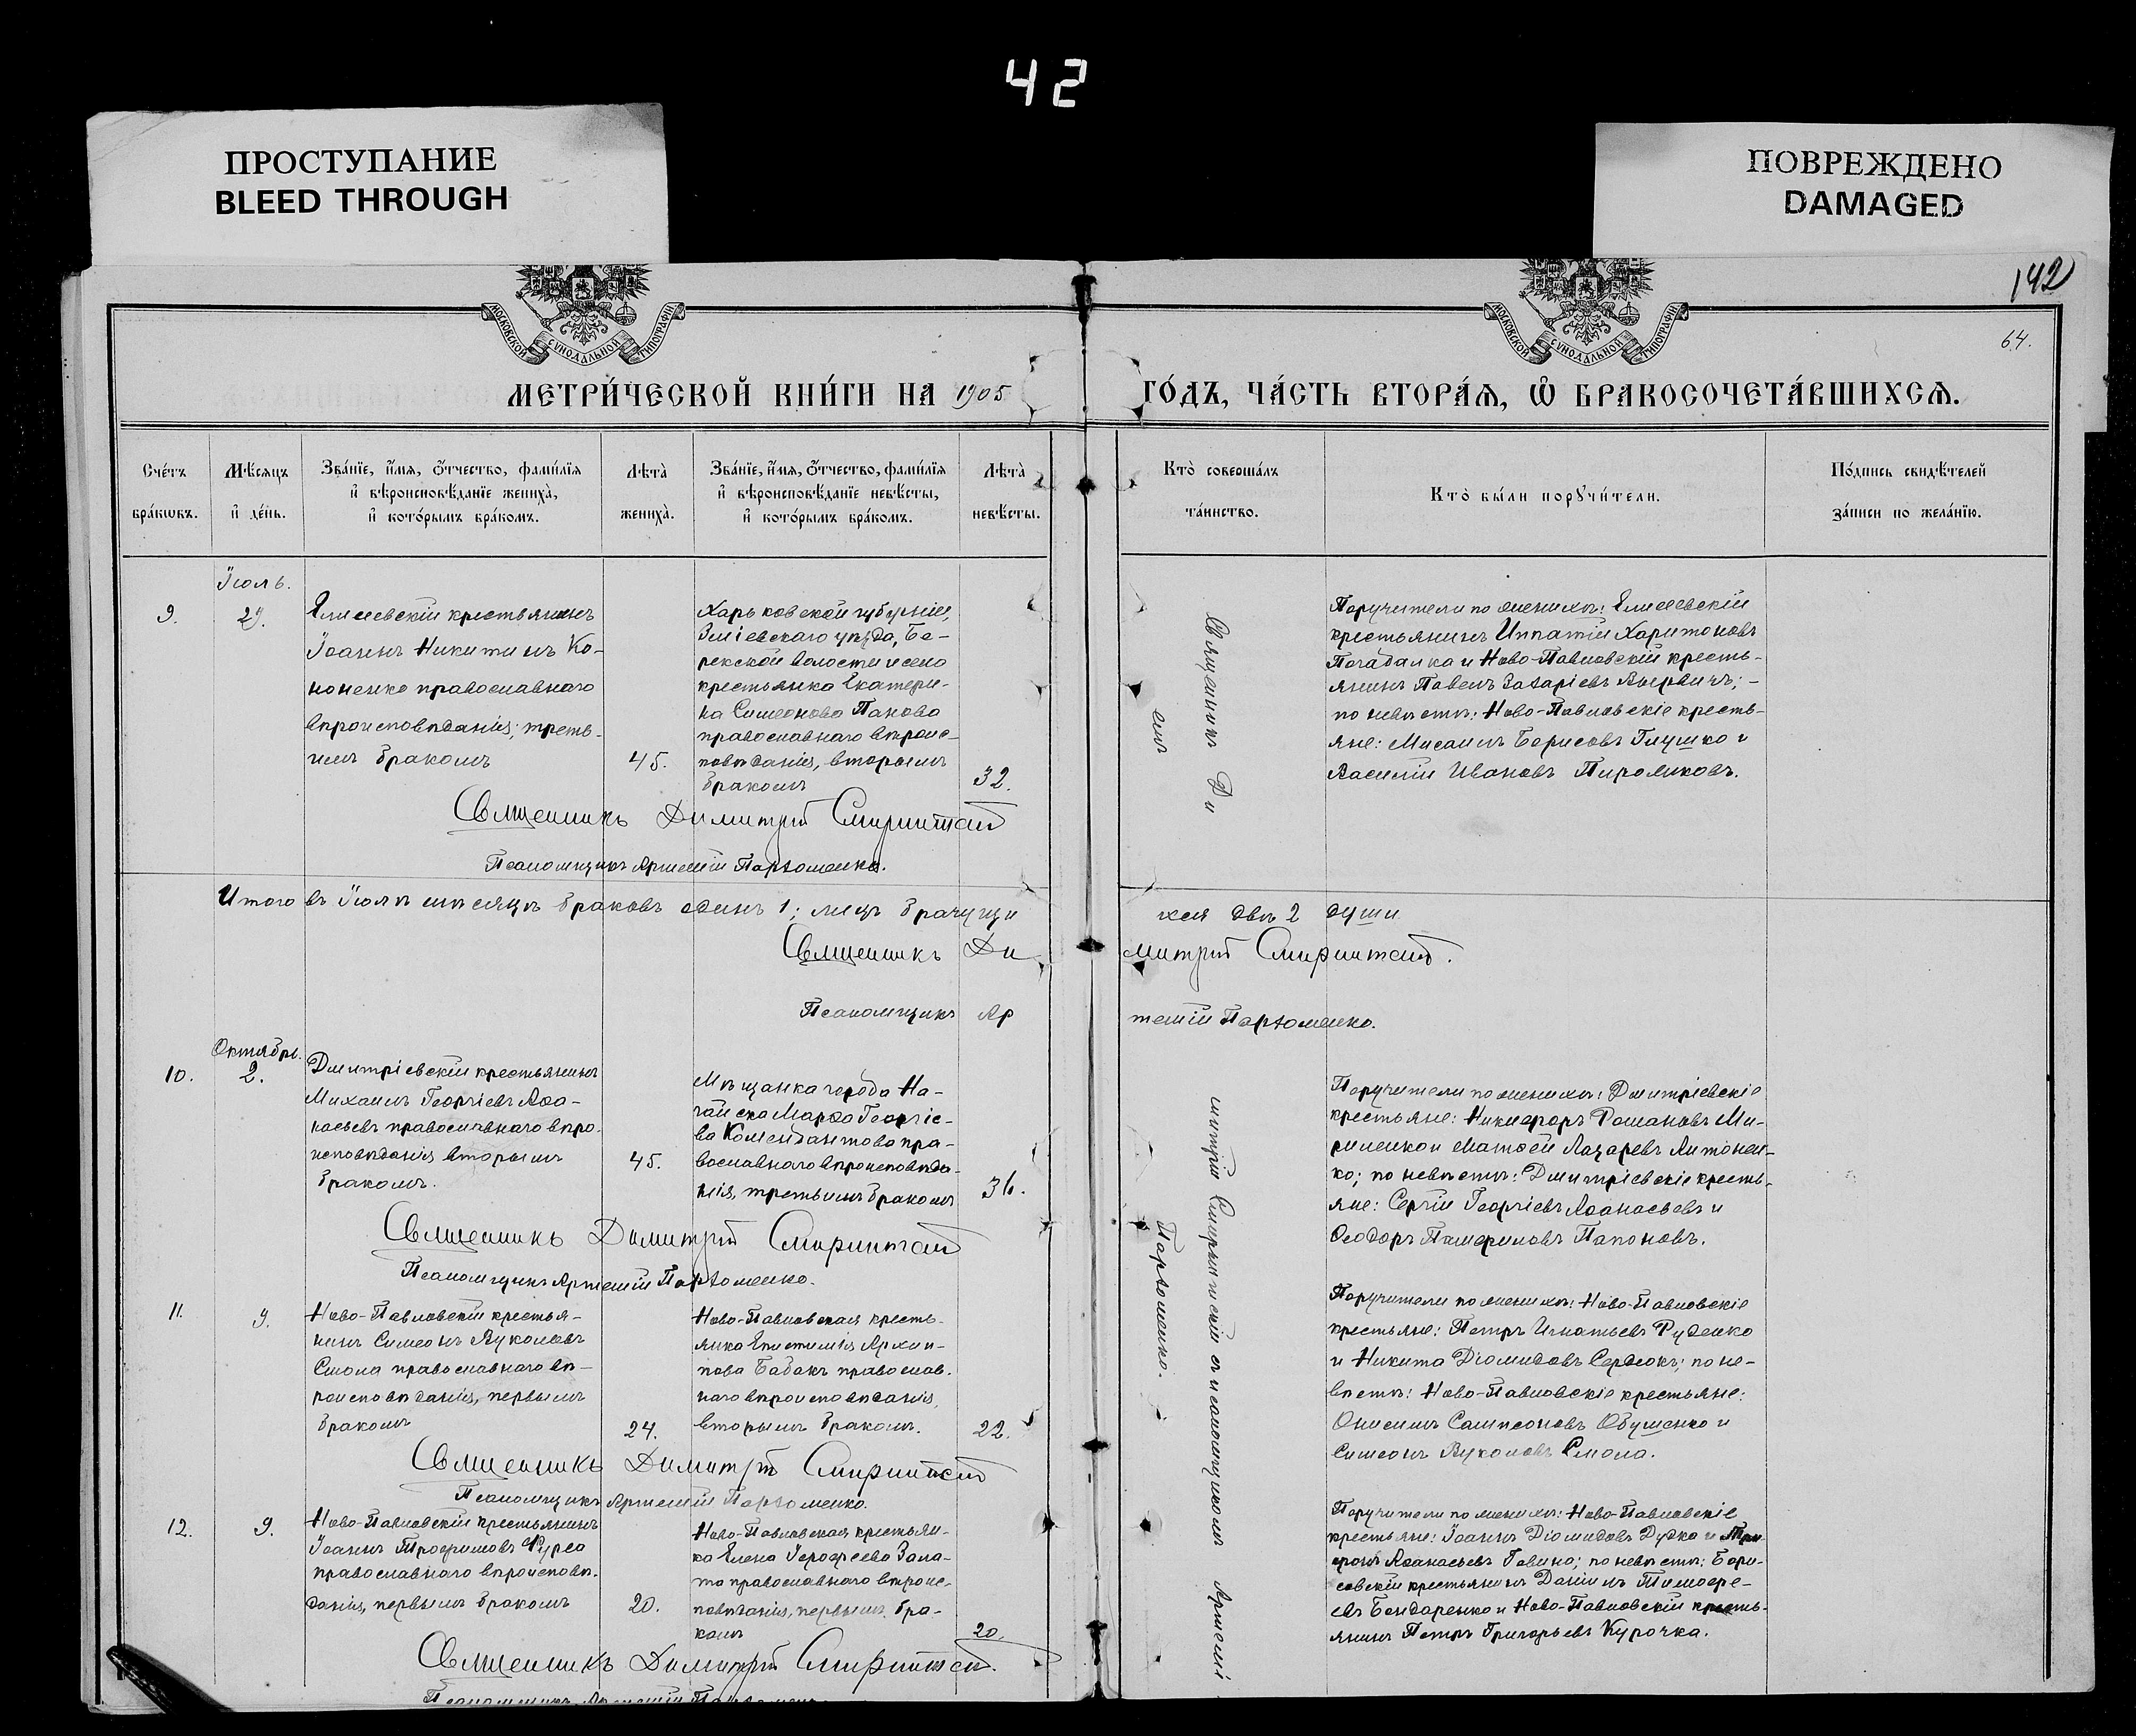 42
ПРОСТУПАНИЕ
BLEED THROUGH
ПОВРЕЖДЕНО
DAMAGED
142
64.
МОСКОВСКОЙ СѴНОДАЛЬНОЙ ТИПОГРАФІИ
МОСКОВСКОЙ СѴНОДАЛЬНОЙ ТИПОГРАФІИ
МЕТРИ́ЧЕСКОЙ КНИ́ГИ НА 1905 ГО́ДЪ, ЧА́СТЬ ВТОРА́Ѧ, Ѽ БРАКОСОЧЕТА́ВШИХСѦ.
Сче́тъ
бра́кѡвъ.
Мѣ́сѧцъ
и҆ де́нь.
Зва́нїе, и҆́мѧ, ѻ҆́тчество, фами́лїѧ
и҆ вѣроисповѣ́данїе жениха̀,
и҆ кото́рымъ бра́комъ.
Лѣта̀
жениха̀.
Зва́нїе, и҆́мѧ, ѻ҆́тчество, фами́лїѧ
и҆ вѣроисповѣ́данїе невѣ́сты,
и҆ кото́рымъ бра́комъ.
Лѣта̀
невѣ́сты.
Кто̀ соверша́лъ
та́инство.
Кто̀ бы́ли порꙋчи́тели.
По́дпись свидѣ́телей
за́писи по жела́нїю.
Іюль.
9.
29.
Елисеевскій крестьянинъ
Іоаннъ Никитинъ Ко-
ноненко православнаго
вѣроисповѣданія; треть-
имъ бракомъ
45.
Харьковской губерніи,
Зміевскаго уѣзда, Бе-
рекской волости и села
крестьянка Екатери-
на Симеонова Панова
православнаго вѣроис-
повѣданія, вторымъ
бракомъ
32.
Поручители по женихѣ: Елисеевскій
крестьянинъ Ипатій Харитоновъ
и Ново-Павловскій кресть-
янинъ Павелъ Захаріевъ
по невѣстѣ: Ново-Павловскіе кресть-
яне: Мисаилъ Борисовъ Глушко и
Василій Ивановъ Пирожковъ.
Священникъ Димитрій
Псаломщикъ Артемій Пархоменко.
Итого въ Іюлѣ мѣсяцѣ браковъ одинъ 1; лицъ брачущи
хся двѣ 2 души
Священникъ Ди
митрій
Псаломщикъ Ар
темій Пархоменко.
Октябрь.
10.
2.
Дмитріевскій крестьянинъ
Михаилъ Георгіевъ Аѳа-
насьевъ православнаго вѣро-
исповѣданія вторымъ
бракомъ.
45.
Мѣщанка города На-
гайска Марѳа Георгіе-
ва Комендантова пра-
вославнаго вѣроисповѣда-
нія, третьимъ бракомъ
36.
Поручители по женихѣ: Дмитріевскіе
крестьяне: Никифоръ Романовъ Ми-
риленко и Матѳей Лазаревъ Антонен-
ко; по невѣстѣ: Дмитріевскіе кресть-
яне: Сергій Георгіевъ Аѳанасьевъ и
Ѳеодоръ Памфиловъ Папоновъ.
Священникъ Димитрій
Псаломщикъ Артемій Пархоменко.
11.
9.
Ново-Павловскій крестья-
нинъ Симеонъ Вуколовъ
Смола православнаго вѣ-
роисповѣданія, первымъ
бракомъ
24.
Ново-Павловская кресть-
янка Епистимія Архип-
пова Бабакъ православ-
наго вѣроисповѣданія,
вторымъ бракомъ.
22.
Поручители по женихѣ: Ново-Павловскіе
крестьяне: Петръ Игнатьевъ Руденко
и Никита Діомидовъ Сердюкъ; по не-
вѣстѣ: Ново-Павловскіе крестьяне:
Онисимъ Сампсоновъ и
Симеонъ Вуколовъ Смола.
Священникъ Димитрій
Псаломщикъ Артемій Пархоменко.
12.
9.
Ново-Павловскій крестьянинъ
Іоаннъ Трофимовъ Фурса
православнаго вѣроисповѣ-
данія, первымъ бракомъ
20.
Ново-Павловская крестьян-
ка Елена Іерофеева Запа-
та православнаго вѣроис-
повѣданія, первымъ бра-
комъ
20.
Поручители по женихѣ: Ново-Павловскіе
крестьяне: Іоаннъ Діомидовъ Дудка и
Аѳанасьевъ по невѣстѣ: Бори-
совскій крестьянинъ Даніилъ Тимофе-
евъ Бондаренко и Ново-Павловскій кресть-
янинъ Петръ Григорьевъ Курочка.
Священникъ Димитрій
Псаломщикъ Артемій
Священникъ Ди
митрій съ псаломщикомъ Артемі
емъ
Пархоменко.